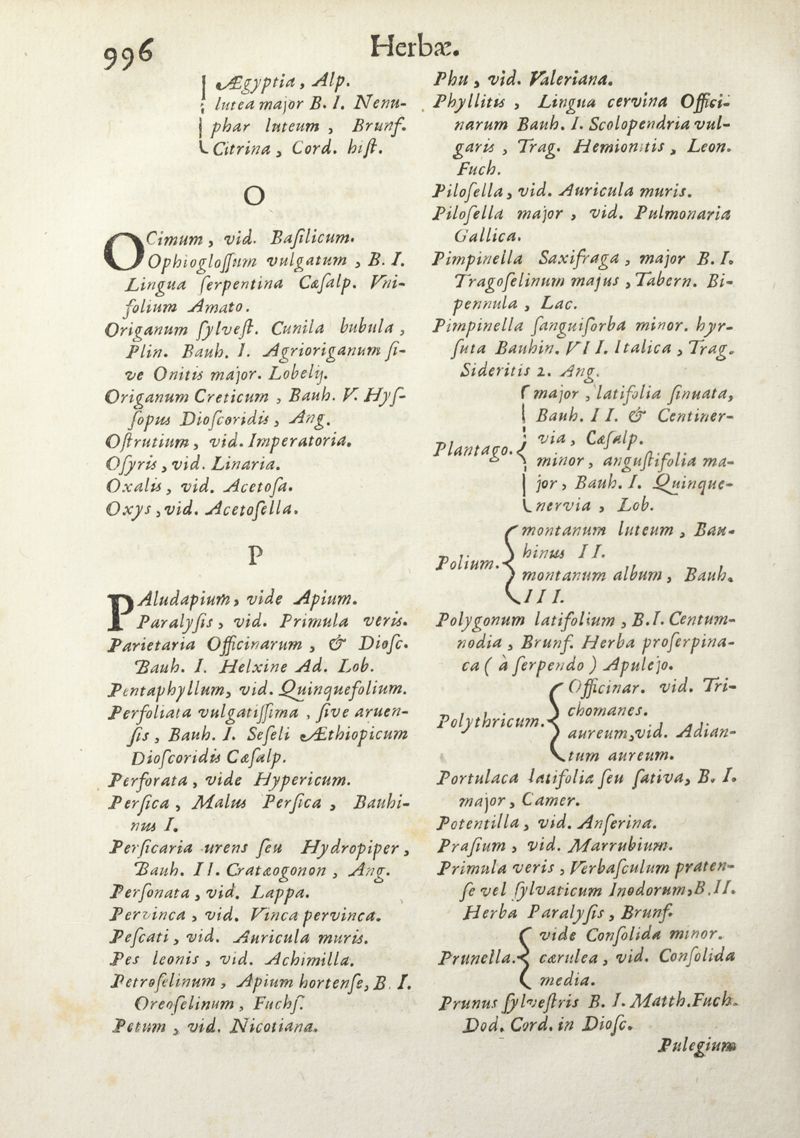 996
Herbæ.
Ægyptia, Alp.
lutea major B. I. Nenu-
phar luteum, Brunf.
Citrina, Cord. hiſt.
O
OCimum, vid. Baſilicum.
Ophiogloſſum vulgatum, B. I.
Lingua ſerpentina Cæſalp. Vni-
folium Amato.
Origanum ſylveſt. Cunila bubula,
Plin. Bauh. I. Agrioriganum ſi-
ve Onitis major. Lobelij.
Origanum Creticum, Bauh. V. Hyſ-
ſopus Dioſcoridis, Ang.
Oſtrutium, vid. Imperatoria.
Oſyris, vid. Linaria.
Oxalis, vid. Acetoſa.
Oxys, vid. Acetoſella.
P
PAludapium, vide Apium.
Paralyſis, vid. Primula veris.
Parietaria Officinarum, & Dioſc.
Bauh. I. Helxine Ad. Lob.
Pentaphyllum, vid. Quinquefolium.
Perfoliata vulgatiſſima, ſive aruen-
ſis, Bauh. I. Seſeli Æthiopicum
Dioſcoridis Cæſalp.
Perforata, vide Hypericum.
Perſica, Malus Perſica, Bauhi-
nus I.
Perſicaria urens ſeu Hydropiper,
Bauh. II. Cratæogonon, Ang.
Perſonata, vid. Lappa.
Pervinca, vid. Vinca pervinca.
Peſcati, vid. Auricula muris.
Pes leonis, vid. Achimilla.
Petroſelinum, Apium hortenſe, B. I.
Oreoſelinum, Fuchſ.
Petum, vid. Nicotiana.
Phu, vid. Valeriana.
Phyllitis, Lingua cervina Offici-
narum Bauh. I. Scolopendria vul-
garis, Trag. Hemionitis, Leon.
Fuch.
Piloſella, vid. Auricula muris.
Piloſella major, vid. Pulmonaria
Gallica.
Pimpinella Saxifraga, major B. I.
Tragoſelinum majus, Tabern. Bi-
pennula, Lac.
Pimpinella ſanguiſorba minor. hyr-
ſuta Bauhin. VII. Italica, Trag.
Sideritis 2. Ang.
major, latifolia ſinuata,
Bauh. II. & Centiner-
via, Cæſalp.
Plantago.
minor, anguſtifolia ma-
jor, Bauh. I. Quinque-
nervia, Lob.
montanum luteum, Bau-
hinus II.
Polium.
montanum album, Bauh.
III.
Polygonum latifolium, B. I. Centum-
nodia, Brunf. Herba proſerpina-
ca (à ſerpendo) Apulejo.
Officinar. vid. Tri-
chomanes.
Polythricum.
aureum, vid. Adian-
tum aureum.
Portulaca latifolia ſeu ſativa, B. I.
major, Camer.
Potentilla, vid. Anſerina.
Praſium, vid. Marrubium.
Primula veris, Verbaſculum praten-
ſe vel ſylvaticum Inodorum, B. II.
Herba Paralyſis, Brunf.
vide Conſolida minor.
Prunella. cærulea, vid. Conſolida
media.
Prunus ſylveſtris B. I. Matth. Fuch.
Dod. Cord. in Dioſc.
Pulegium